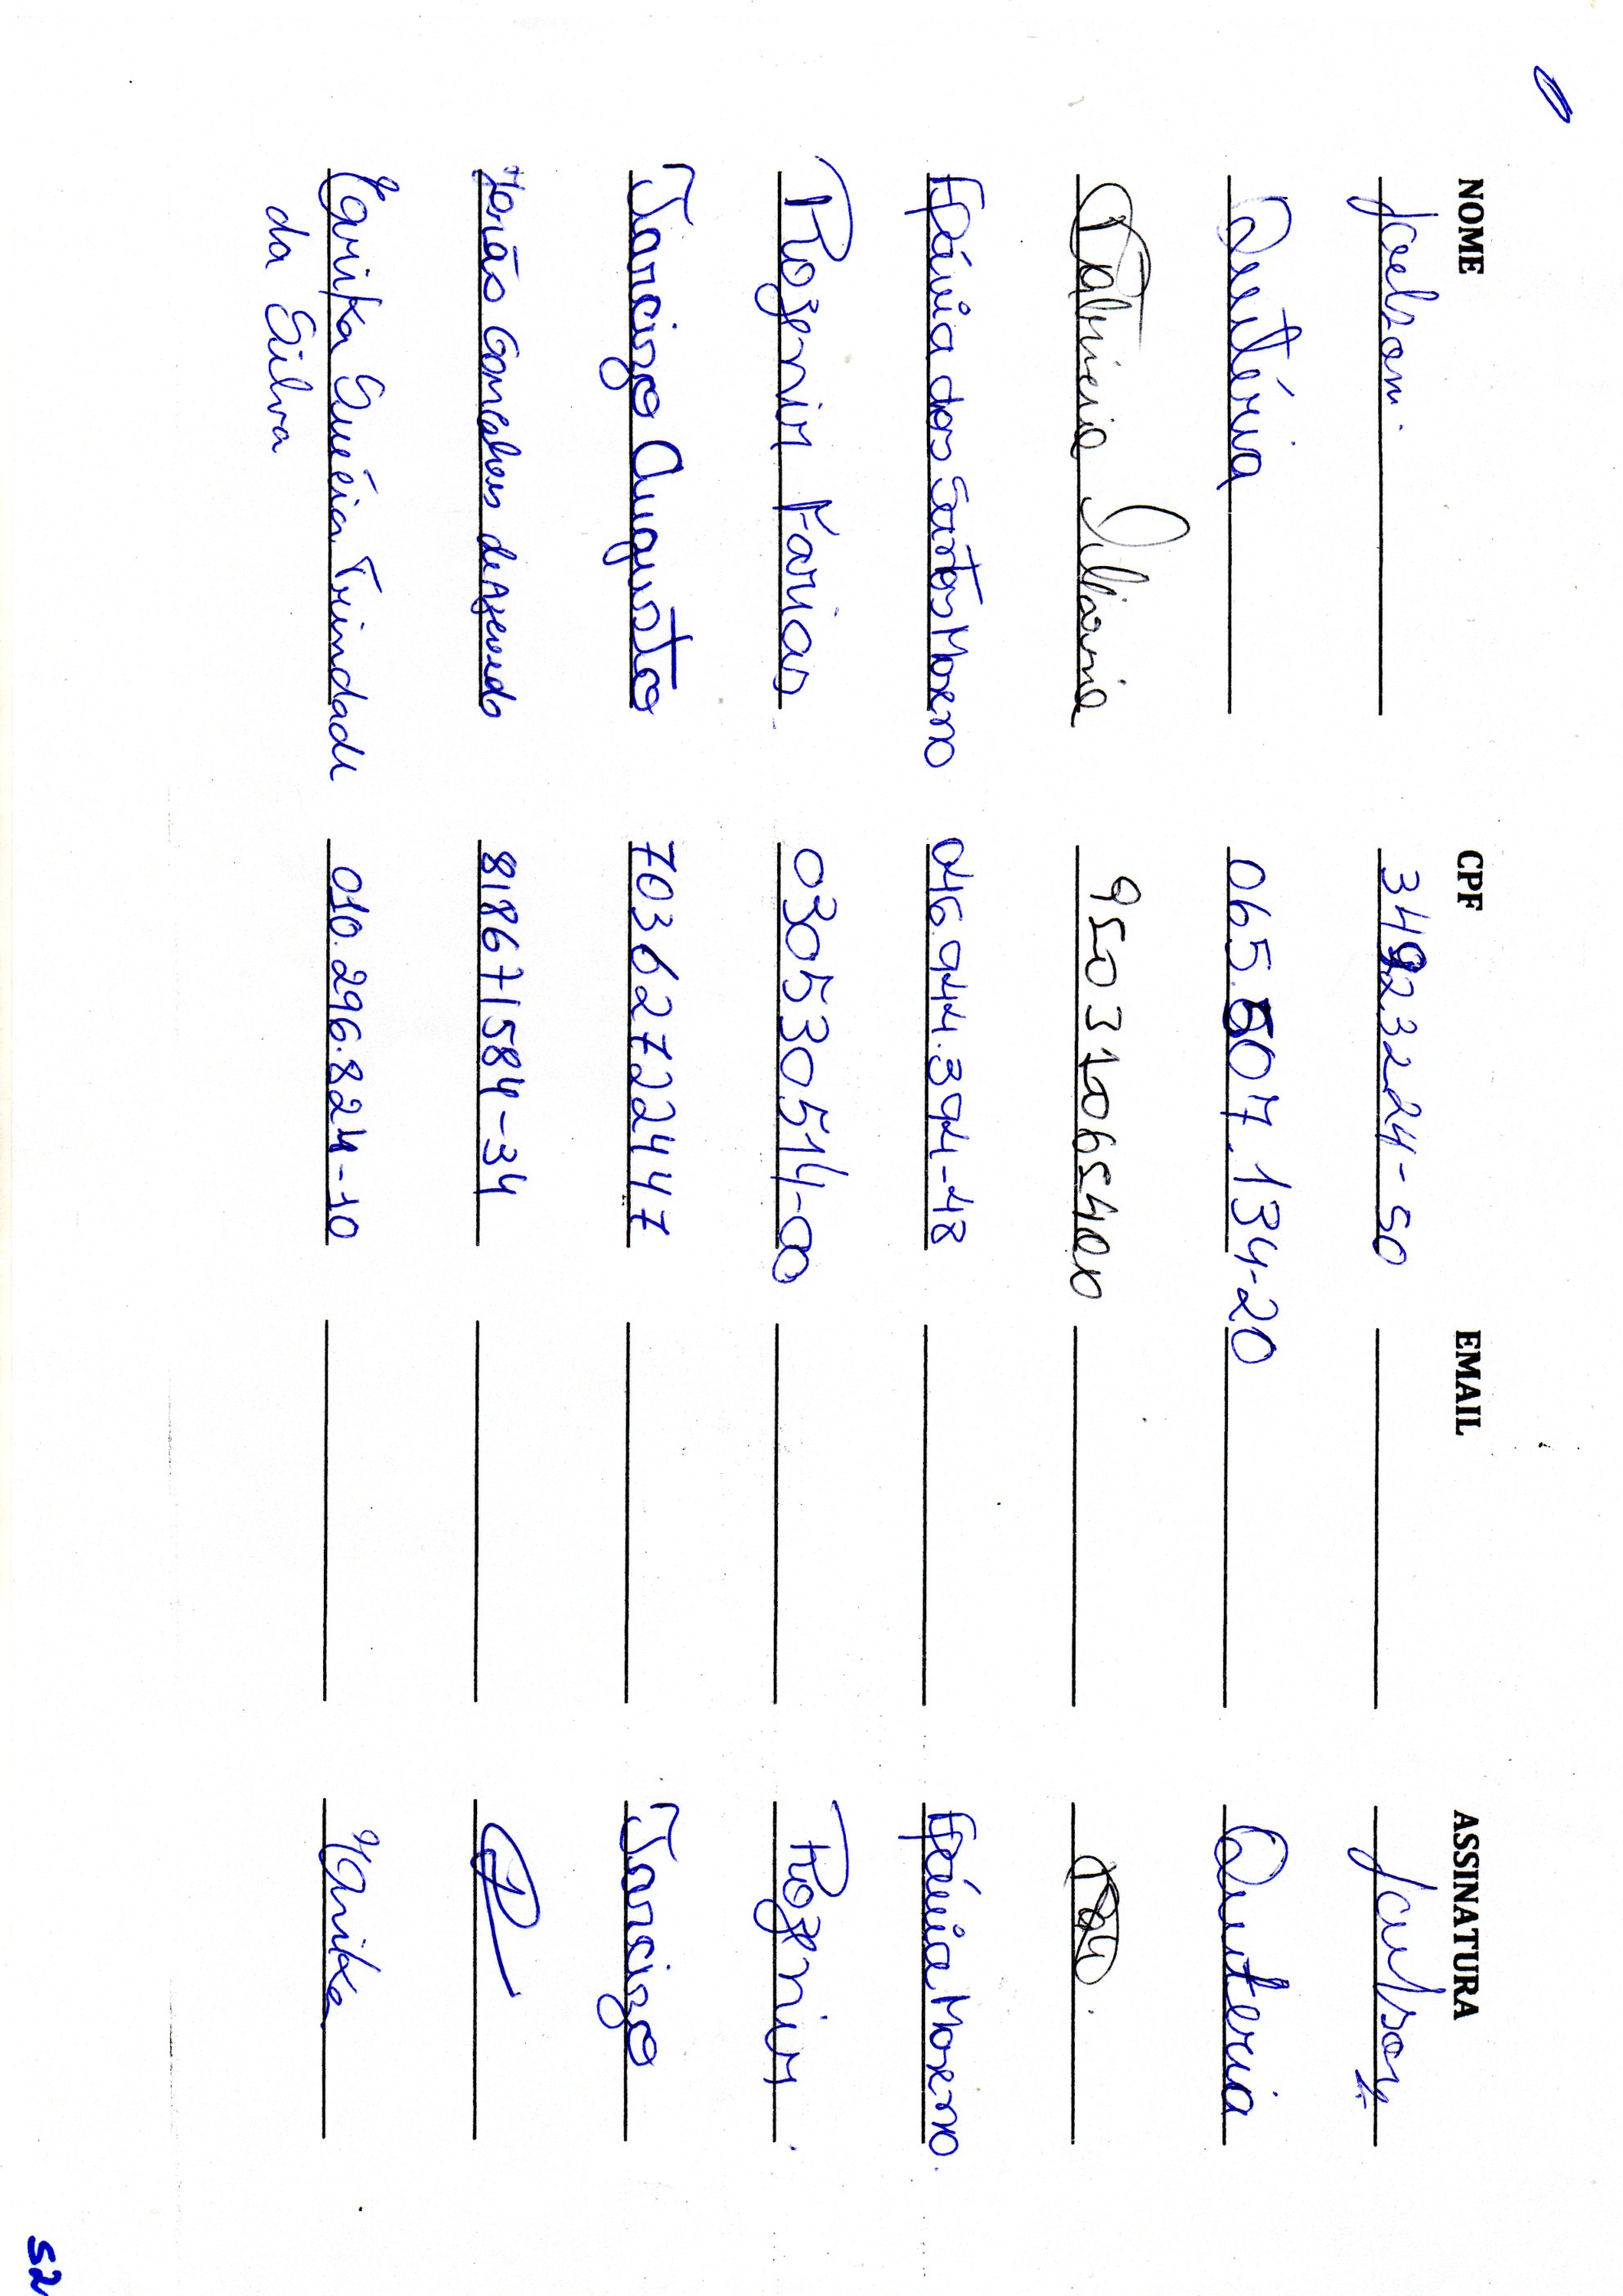 NOME CPF EMAIL ASSINATURA
Joelson. 34923224-50 Joelson
Quitéria 065.507.134-20 Quiteria
Fabricia Illiania 95031065400
Efânia dos Santos Moreno 046.944.394-48 Efânia Moreno.
Rozenir Farias 030530514-00 Rozenir.
Tarcizo Augusto 70362722447 Tarcizo
Gonçalves de Azevedo 818671584-34
Suéia Trindade 010.296.824-10
da Silva
52